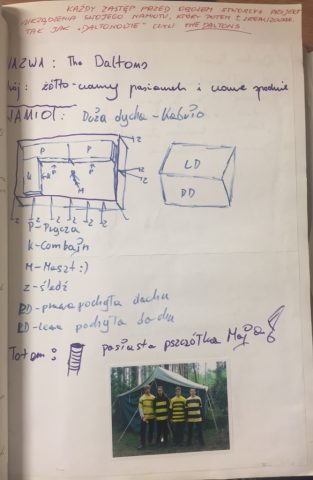 KAŻDY ZASTĘP PRZED OBOZEM STWORZYŁ PROJEKT
URZĄDZENIA SWOJEGO NAMIOTU, KTÓRY POTEM ZREALIZOWAŁ
TAK JAK "DALTONOWIE" CZYLI THE DALTONS
NAZWA: The Daltons
żółto-czarny pasiasty i czarne spodnie
NAMIOT: Duża dycha -
P P
K
M
z z z z z z z z
LD
PD
P-Prycza
K-Combajn
M-Maszt :)
Z-śledź
PD-prawa pochyła dachu
LD-lewa pochyła dachu
Totem: pasiasta pszczółka Maja